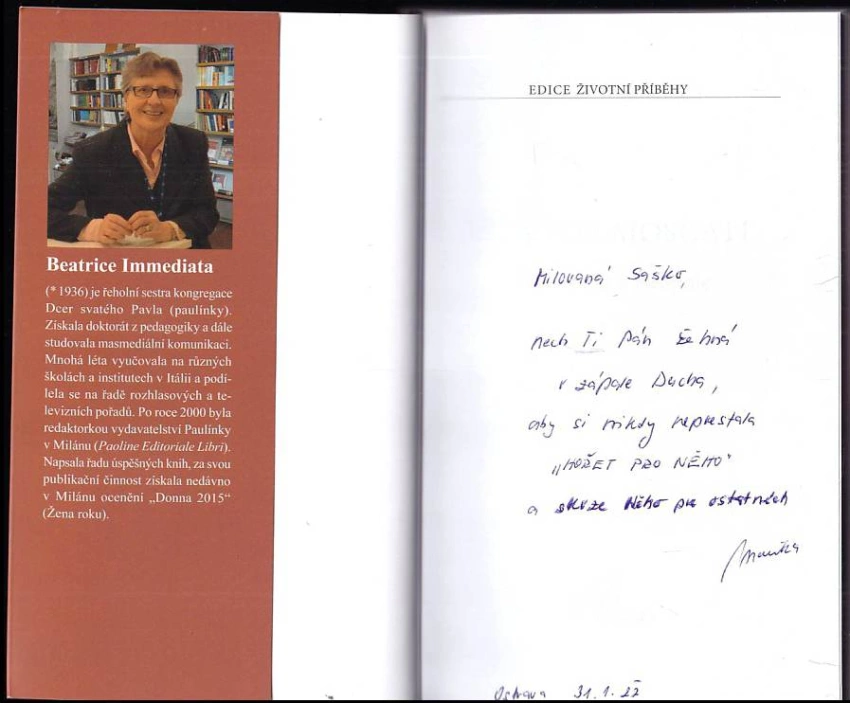 Beatrice Immediata
(* 1936) je řeholní sestra kongregace
Dcer svatého Pavla (paulínky).
Získala doktorát z pedagogiky a dále
studovala masmediální komunikaci.
Mnohá léta vyučovala na různých
školách a institutech v Itálii a podí-
lela se na řadě rozhlasových a te-
levizních pořadů. Po roce 2000 byla
redaktorkou vydavatelství Paulínky
v Milánu (Paoline Editoriale Libri).
Napsala řadu úspěšných knih, za svou
publikační činnost získala nedávno
v Milánu ocenění „Donna 2015“
(Žena roku).
EDICE ŽIVOTNÍ PŘÍBĚHY
Milovaná Saško,
nech Ti Pán žehná
v zápale Ducha,
aby si nikdy neprestala
„HOŘET PRO NĚHO“
a skrze Něho pre ostatných
Ostrava 31.1.22